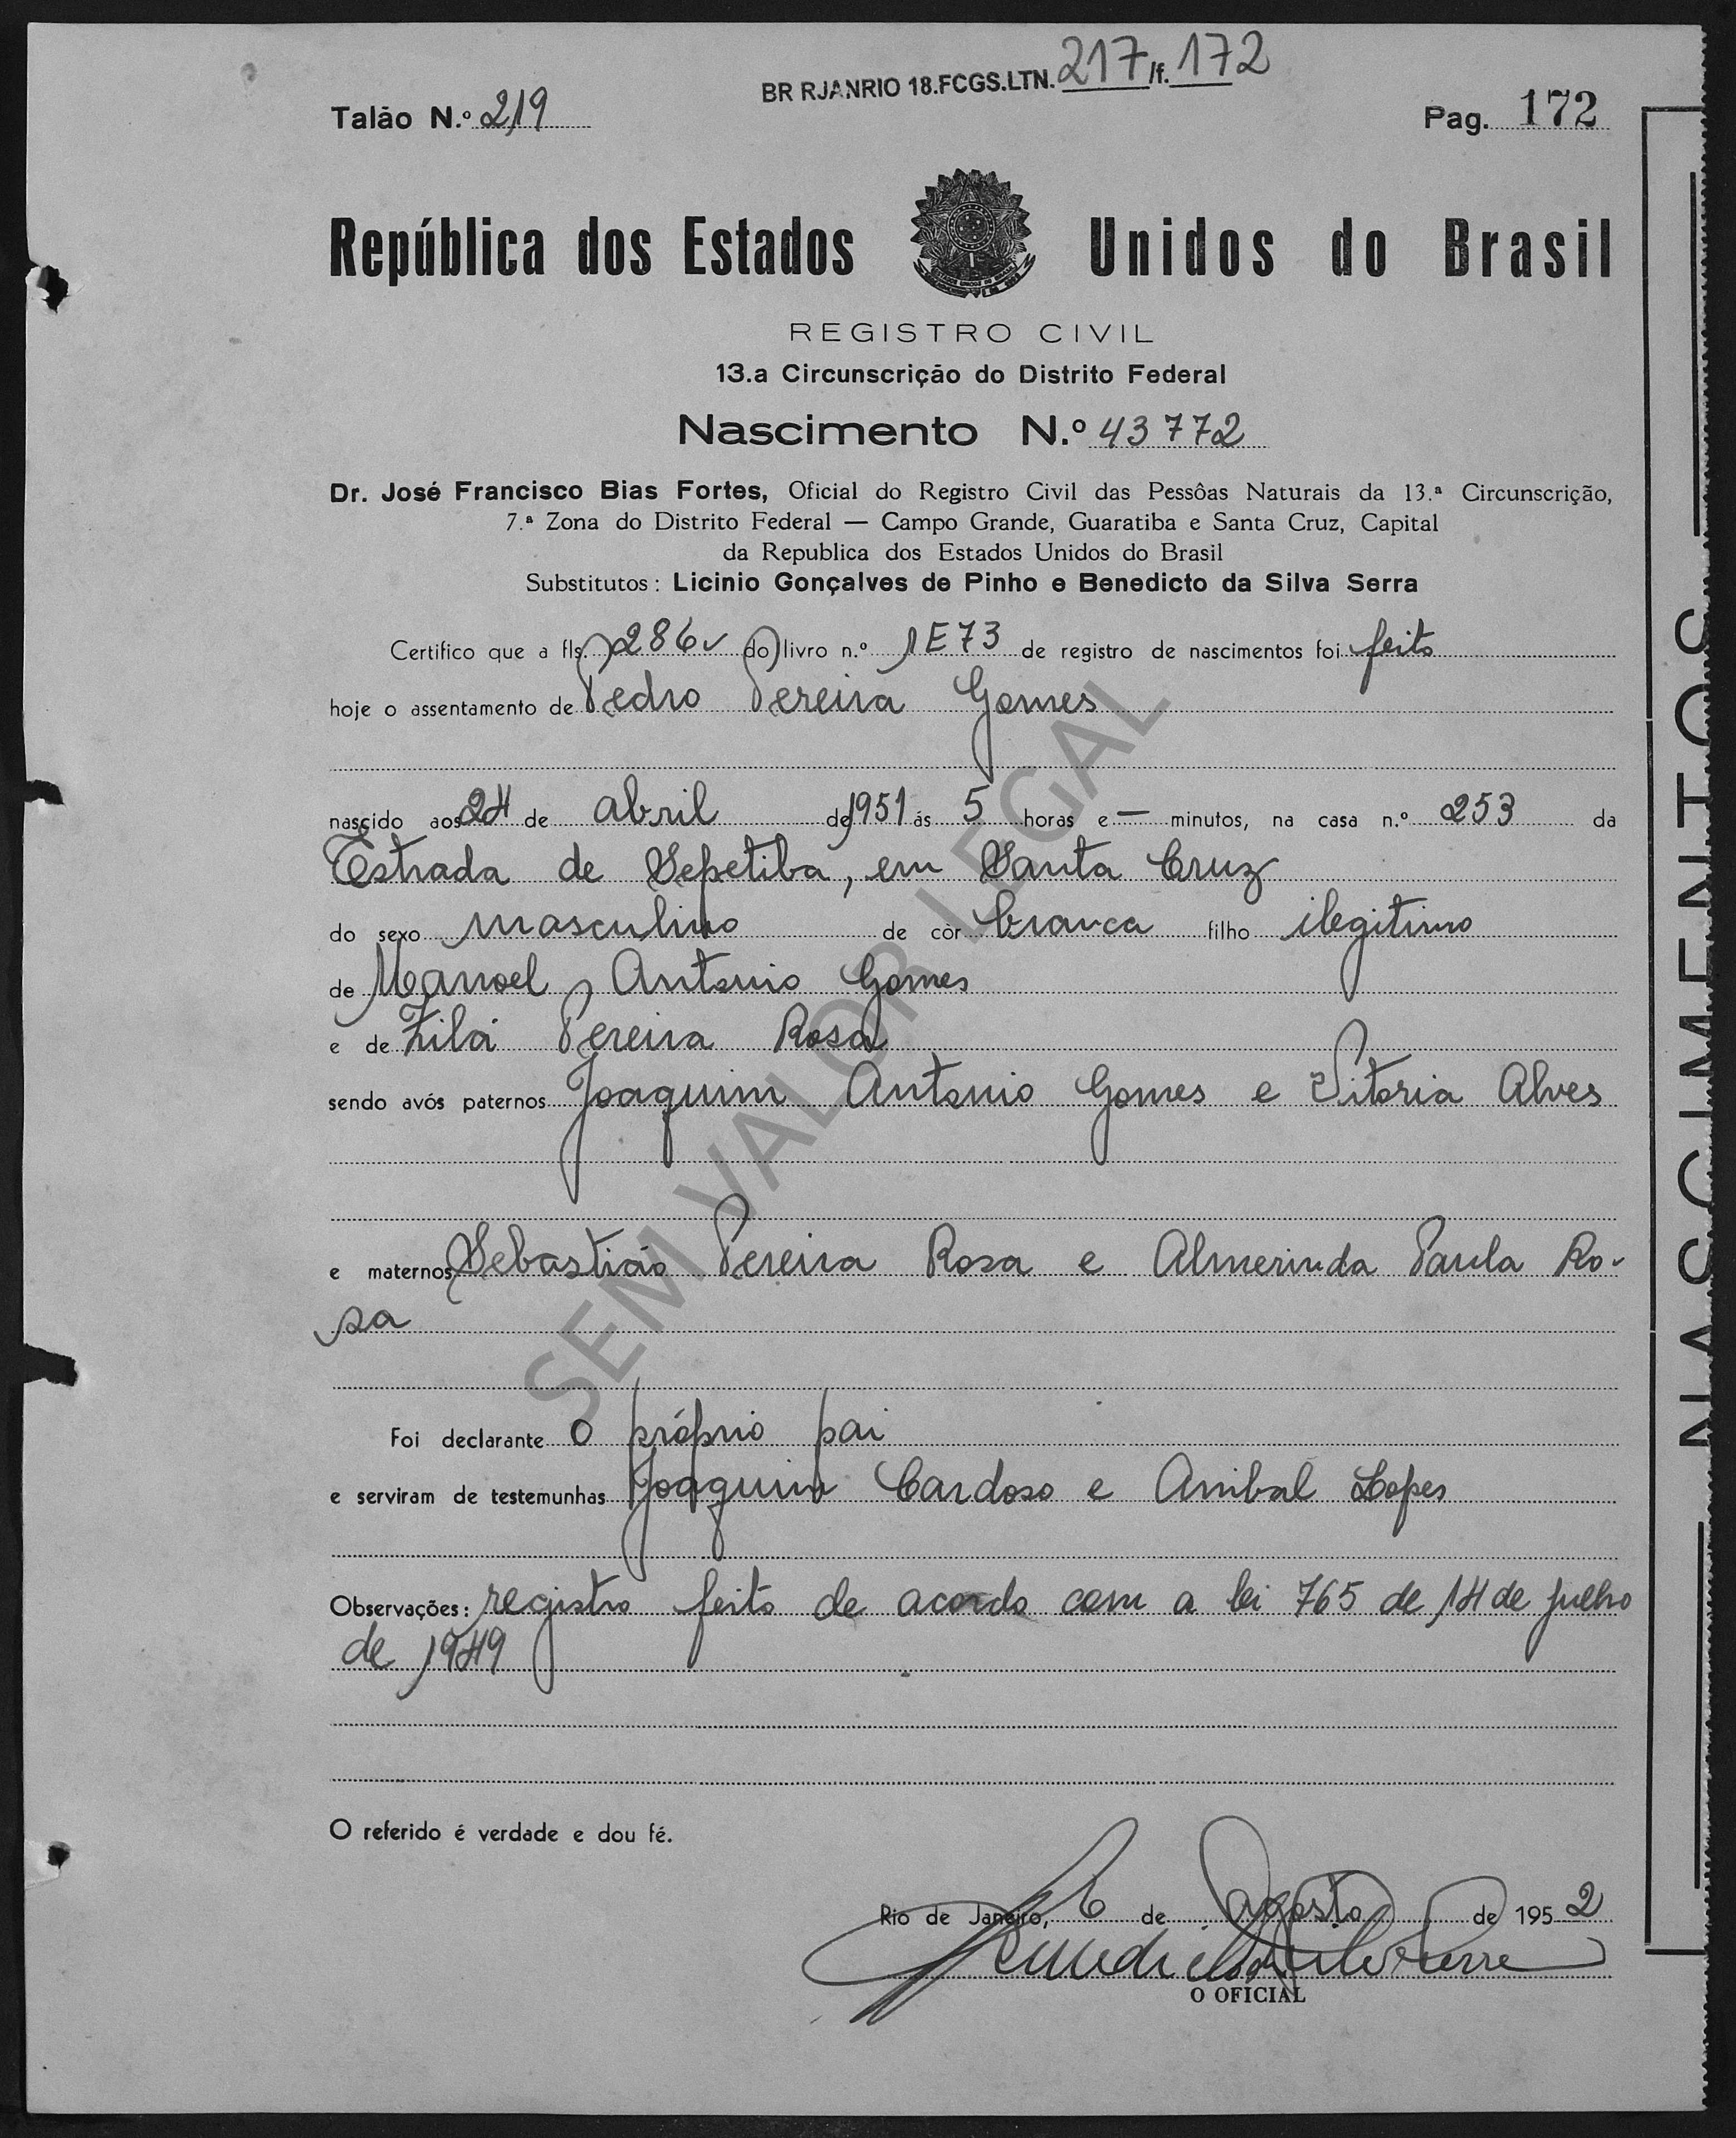 BR RJANRIO 18.FCGS.LTN. 217 /f. 172
Talão N.º 219 Pag. 172
República dos Estados Unidos do Brasil
REGISTRO CIVIL
13.a Circunscrição do Distrito Federal
Nascimento N.º 43772
Dr. José Francisco Bias Fortes, Oficial do Registro Civil das Pessôas Naturais da 13.ª Circunscrição,
7.ª Zona do Distrito Federal — Campo Grande, Guaratiba e Santa Cruz, Capital
da Republica dos Estados Unidos do Brasil
Substitutos: Licinio Gonçalves de Pinho e Benedicto da Silva Serra
Certifico que a fls. 286v do livro n.º 1E73 de registro de nascimentos foi feito
hoje o assentamento de Pedro Pereira Gomes
nascido aos 24 de abril de 1951 ás 5 horas e — minutos, na casa n.º 253 da
Estrada de Sepetiba, em Santa Cruz
do sexo masculino de côr branca filho ilegitimo
de Manoel Antonio Gomes
e de Zilá Pereira Rosa
sendo avós paternos Joaquim Antonio Gomes e Vitoria Alves
e maternos Sebastião Pereira Rosa e Almerinda Paula Ro-
sa
Foi declarante o próprio pai
e serviram de testemunhas Joaquim Cardoso e Anibal Lopes
Observações: registro feito de acordo com a lei 765 de 14 de julho
de 1949
O referido é verdade e dou fé.
Rio de Janeiro, 6 de agosto de 1952
O OFICIAL
NASCIMENTOS
SEM VALOR LEGAL